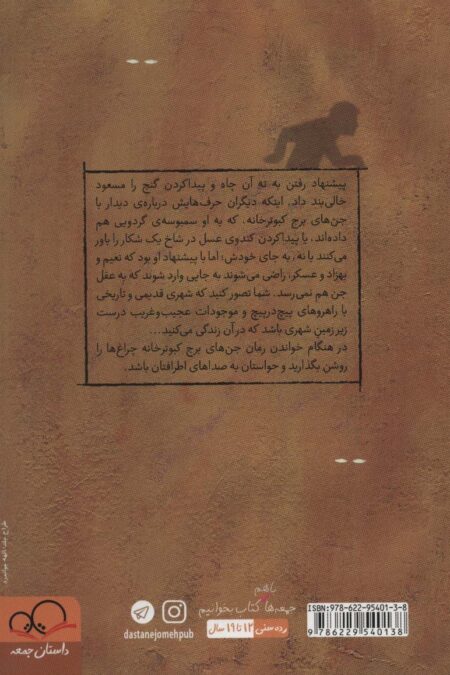 پیشنهاد رفتن به ته آن چاه و پیداکردن گنج را مسعود
خالی‌بند داد. اینکه دیگران حرف‌هایش درباره‌ی دیدار با
جن‌های برج کبوترخانه، که به او سمبوسه‌ی گردویی هم
داده‌اند، یا پیداکردن کندوی عسل در شاخ یک شکار را باور
می‌کنند یا نه، به جای خودش؛ اما با پیشنهاد او بود که نعیم و
بهزاد و عسکر، راضی می‌شوند به جایی وارد شوند که به عقل
جن هم نمی‌رسد. شما تصور کنید که شهری قدیمی و تاریخی
با راهروهای پیچ‌درپیچ و موجودات عجیب‌وغریب درست
زیر زمینِ شهری باشد که در آن زندگی می‌کنید...
در هنگام خواندن رمان جن‌های برج کبوترخانه چراغ‌ها را
روشن بگذارید و حواستان به صداهای اطرافتان باشد.
باهم
جمعه‌ها کتاب بخوانیم
رده سنی ۱۲ تا ۱۹ سال
dastanejomehpub
ISBN: 978-622-95401-3-8
9 786229 540138
داستان جمعه